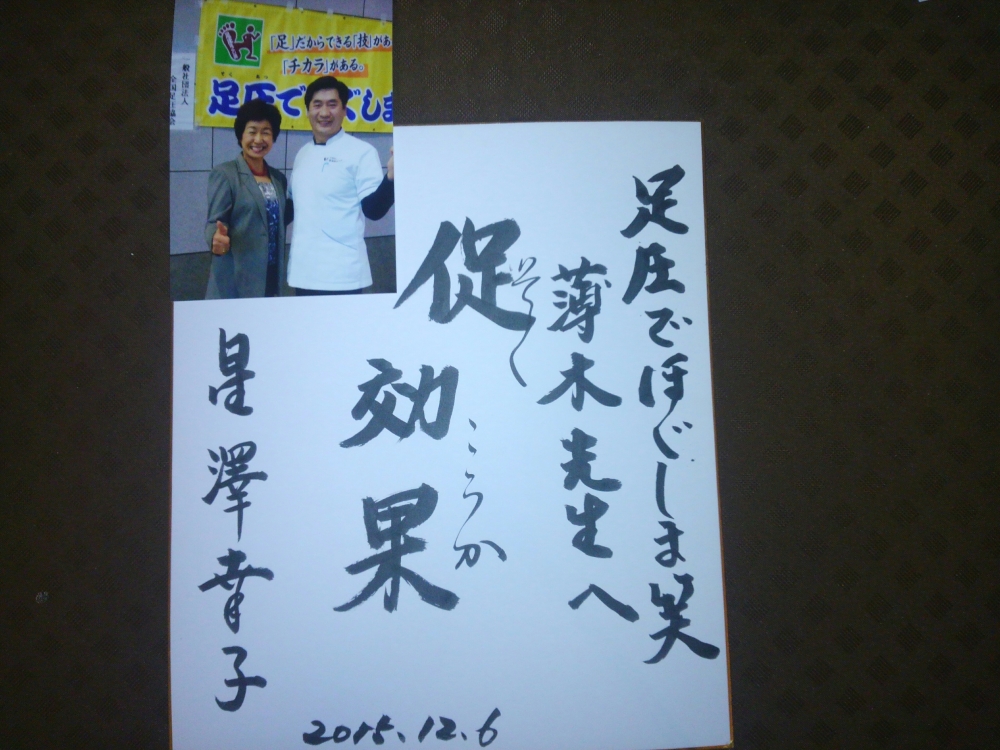 「足」だからできる「技」があ
「チカラ」がある。
そく あつ
足圧で ぐしま
一般社団法人
全国足圧協会
足圧でほぐしま笑
薄木先生へ
促効果
そく
こうか
星澤幸子
2015.12.6